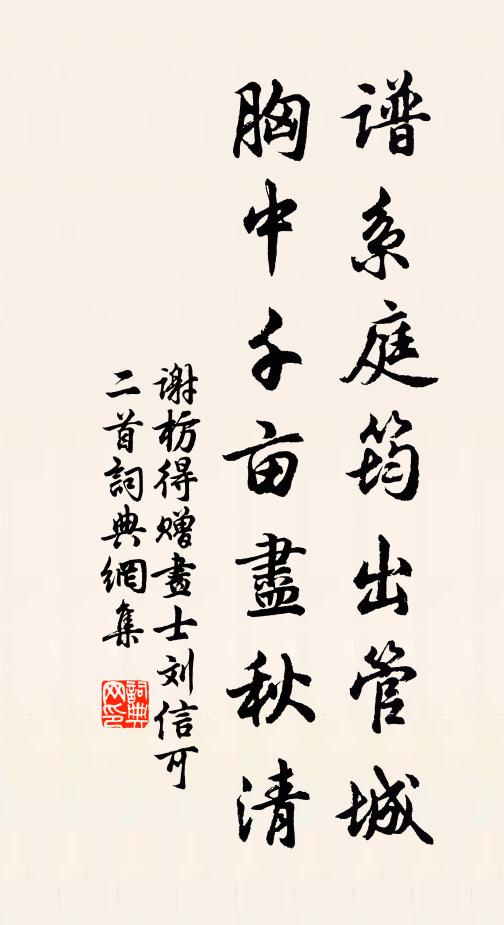 谱系庭筠出管城
胸中千亩盡秋清
谢枋得赠畫士刘信可
二首詞典網集
詞典网印